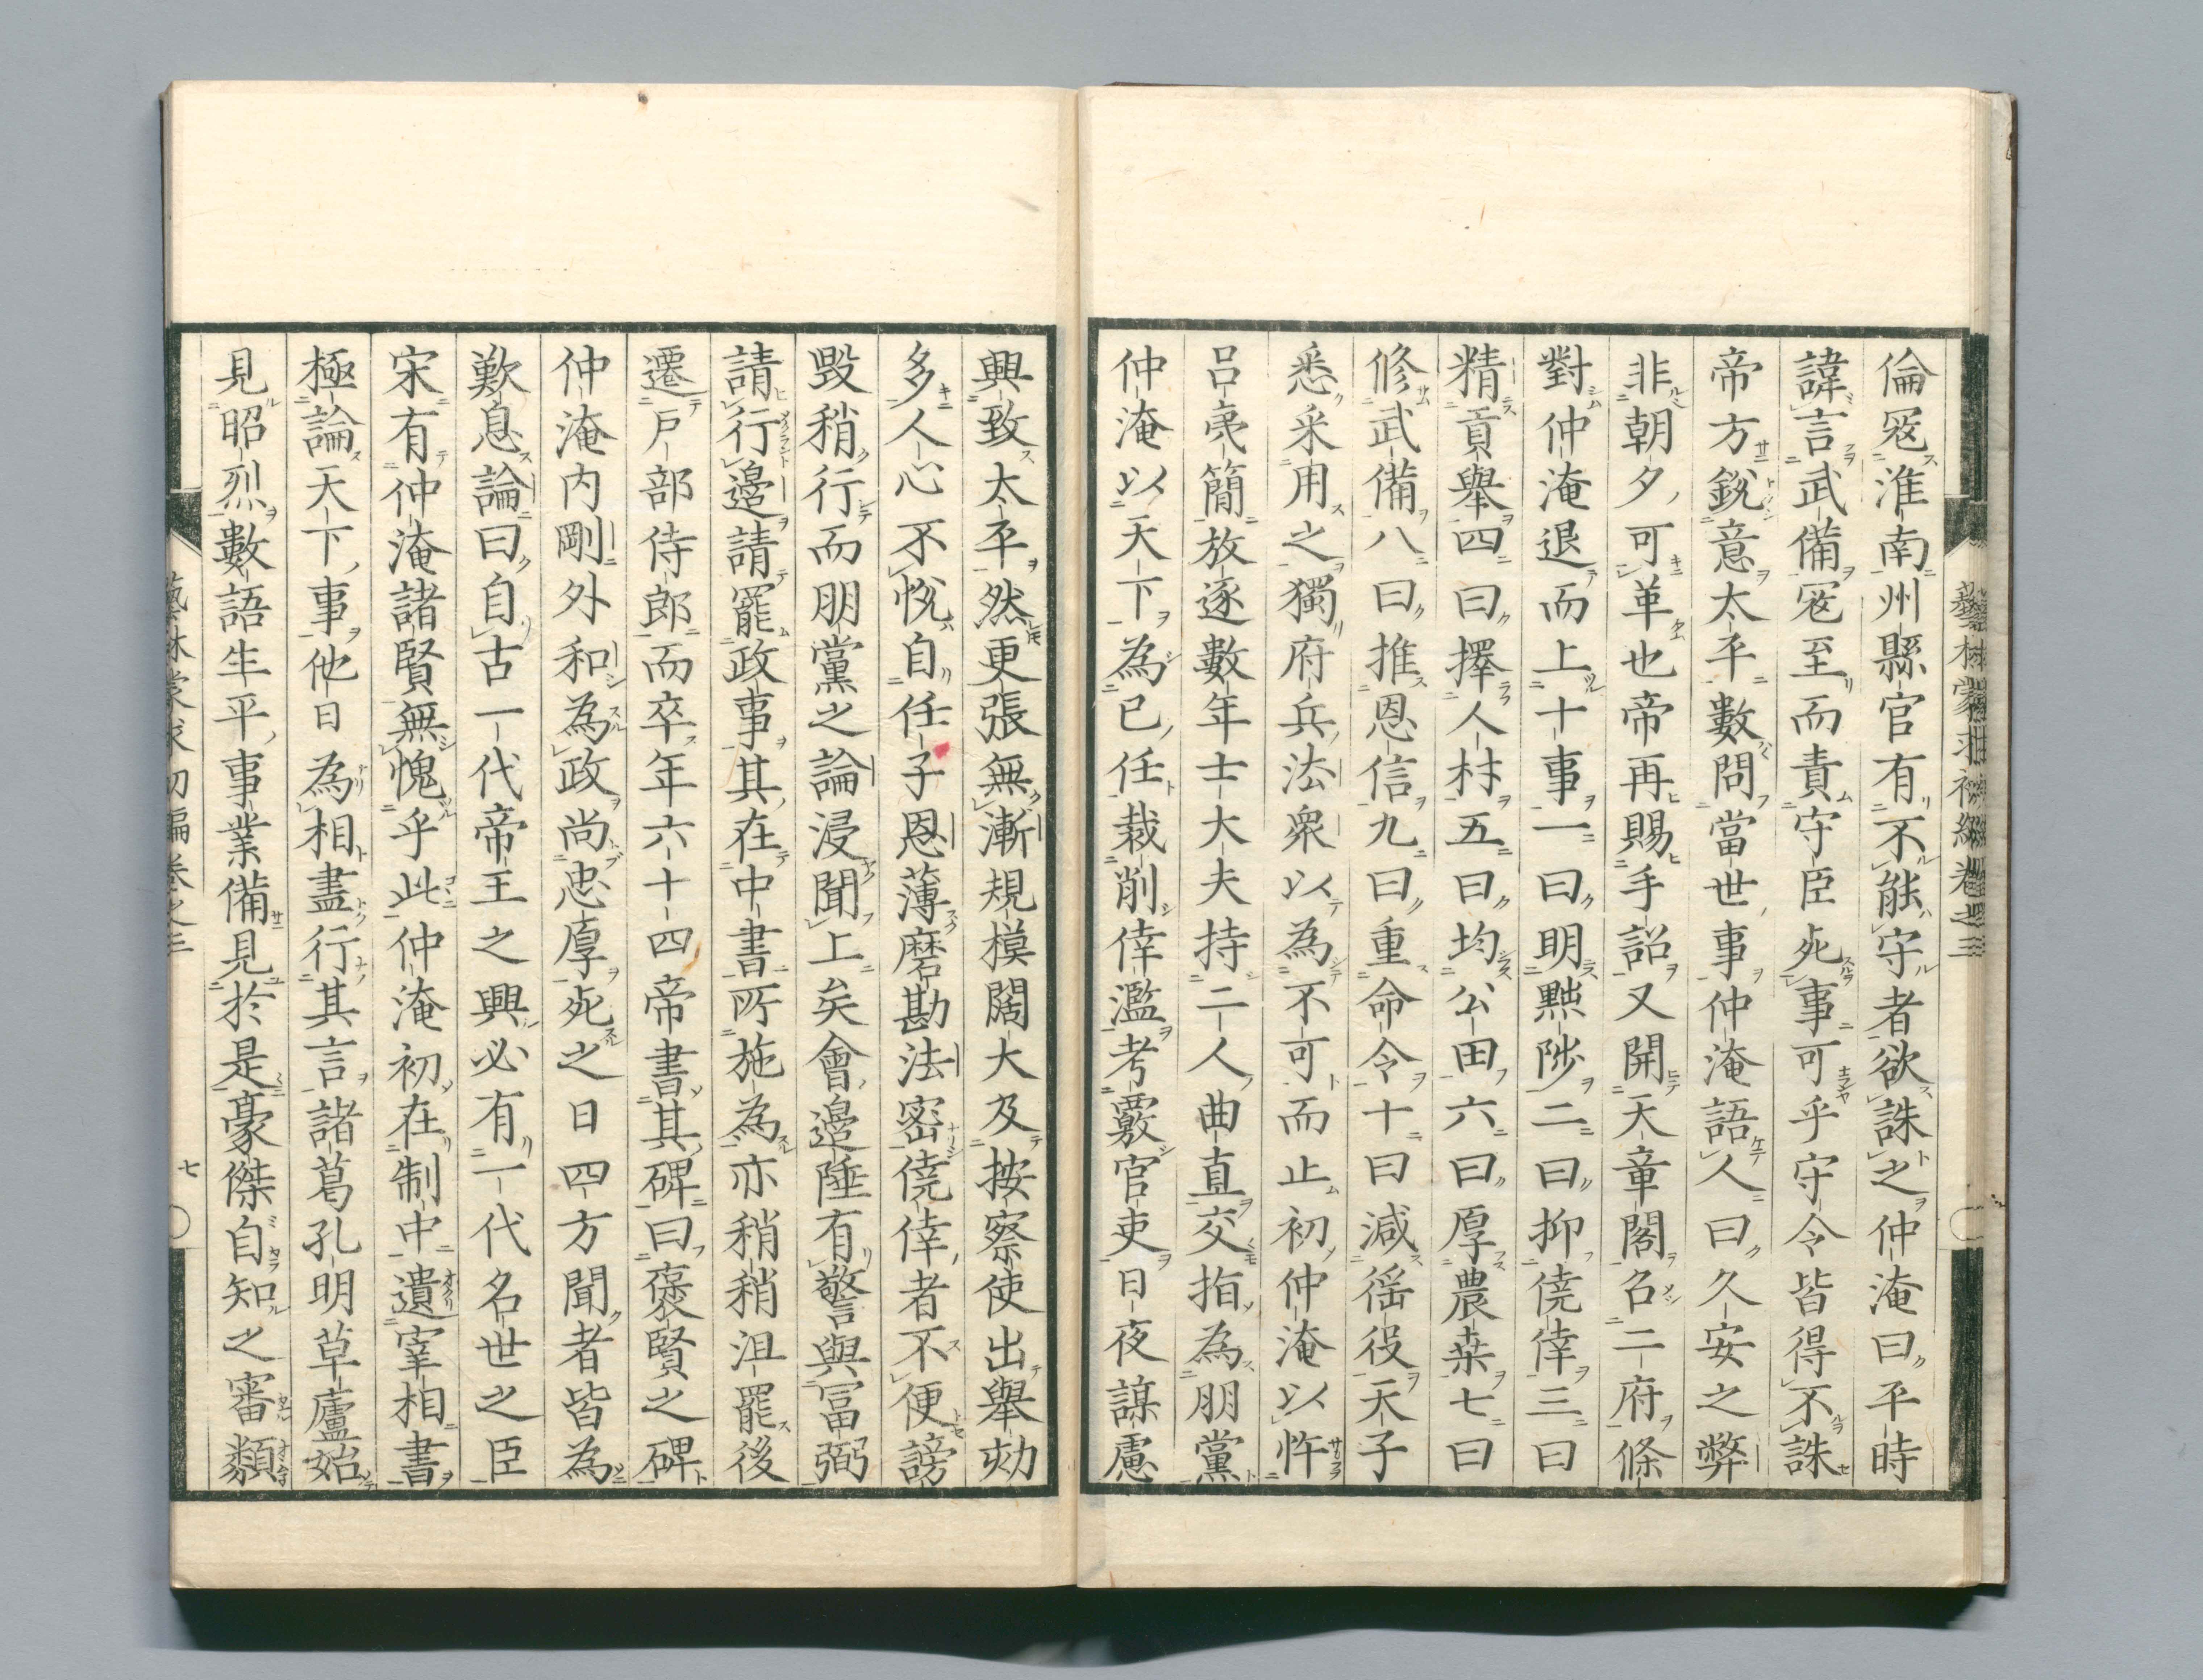 倫寇淮南州縣官有不能守者欲誅之仲淹曰平時
諱言武備寇至而責守臣死事可乎守令皆得不誅
帝方銳意太平數問當世事仲淹語人曰久安之弊
非朝夕可革也帝再賜手詔又開天章閣名二府條
對仲淹退而上十事一曰明黜陟二曰抑僥倖三曰
精貢舉四曰擇人材五曰均公田六曰厚農桒七曰
修武備八曰推恩信九曰重命令十曰減徭役天子
悉采用之獨府兵法衆以為不可而止初仲淹以忤
呂夷簡放逐數年士大夫持二人曲直交指為朋黨
仲淹以天下為已任裁削倖濫考覈官吏日夜謀慮
興致太平然更張無漸規模闊大及按察使出舉劾
多人心不悅自任子恩薄磨勘法密僥倖者不便謗
毀稍行而朋黨之論浸聞上矣會邊陲有警與冨弼
請行邊請罷政事其在中書所施為亦稍稍沮罷後
遷戶部侍郎而卒年六十四帝書其碑曰褒賢之碑
仲淹内剛外和為政尚忠厚死之日四方聞者皆為
歎息論曰自古一代帝王之興必有一代名世之臣
宋有仲淹諸賢無愧乎此仲淹初在制中遺宰相書
極論天下事他日為相盡行其言諸葛孔明草廬始
見昭烈數語生平事業備見於是豪傑自知之審類
藝林蒙求初編卷之三
七